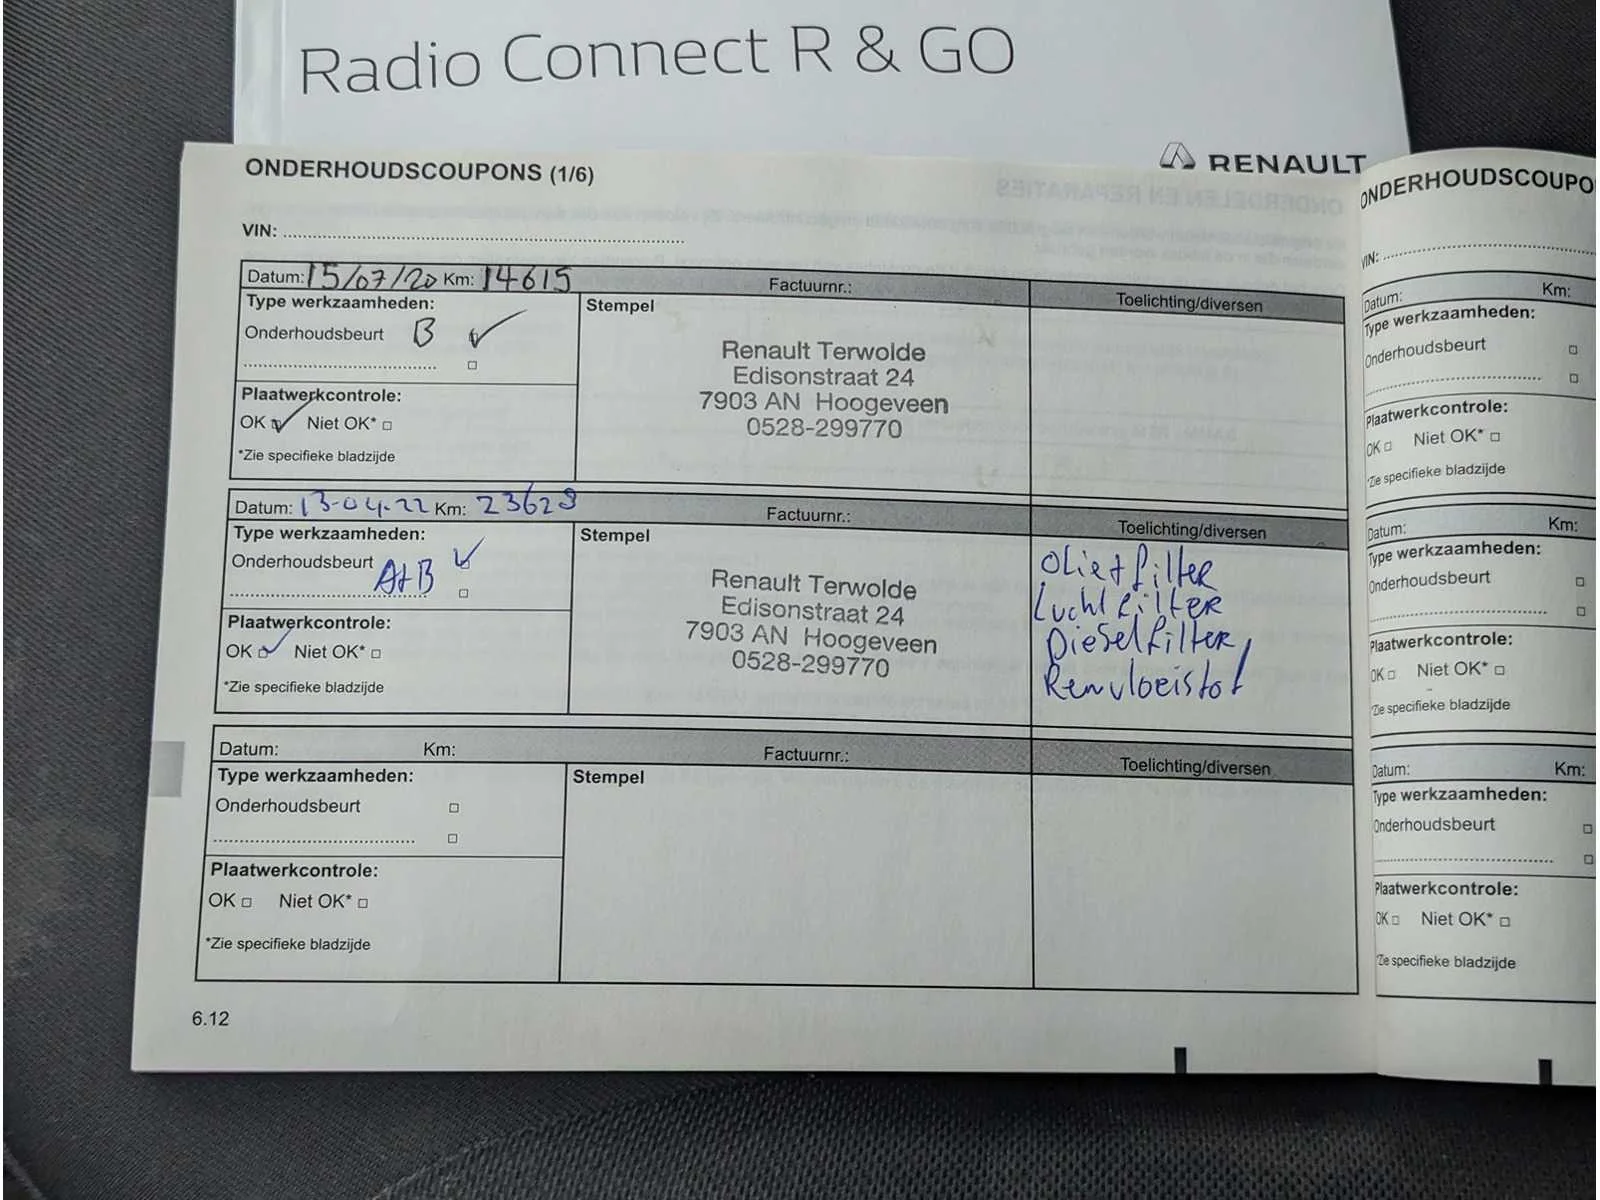 Radio Connect R & GO
RENAULT
ONDERHOUDSCOUPONS (1/6)
VIN:
Datum: 15/07/20 Km: 14615 Factuurnr.: Toelichting/diversen
Type werkzaamheden: Stempel
Onderhoudsbeurt B
Renault Terwolde
Edisonstraat 24
7903 AN Hoogeveen
0528-299770
Plaatwerkcontrole:
OK Niet OK*
*Zie specifieke bladzijde
Datum: 13-04-22 Km: 23629 Factuurnr.: Toelichting/diversen
Type werkzaamheden: Stempel
Onderhoudsbeurt A+B
Renault Terwolde
Edisonstraat 24
7903 AN Hoogeveen
0528-299770
Olie+filter
Luchtfilter
Dieselfilter,
Remvloeistof
Plaatwerkcontrole:
OK Niet OK*
*Zie specifieke bladzijde
Datum: Km: Factuurnr.: Toelichting/diversen
Type werkzaamheden: Stempel
Onderhoudsbeurt
Plaatwerkcontrole:
OK Niet OK*
*Zie specifieke bladzijde
6.12
ONDERHOUDSCOUPO
VIN:
Datum: Km:
Type werkzaamheden:
Onderhoudsbeurt
Plaatwerkcontrole:
OK Niet OK*
*Zie specifieke bladzijde
Datum: Km:
Type werkzaamheden:
Onderhoudsbeurt
Plaatwerkcontrole:
OK Niet OK*
*Zie specifieke bladzijde
Datum: Km:
Type werkzaamheden:
Onderhoudsbeurt
Plaatwerkcontrole:
OK Niet OK*
*Zie specifieke bladzijde